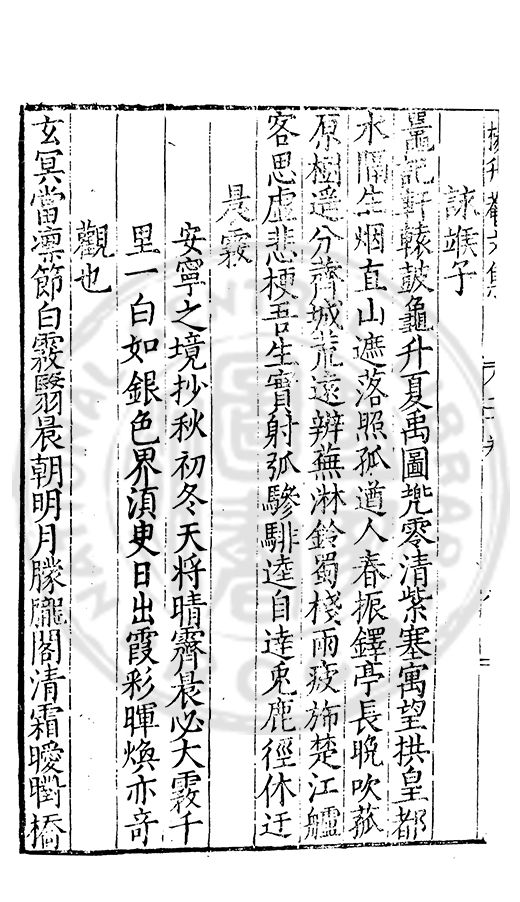 詠堠子
記軒轅鼓龜升夏禹圖㙮零清紫塞寓望拱皇都
水隔生烟直山遮落照孤遒人春振鐸亭長晚吹菰
原樹遥分薺城荒遠辨蕪淋鈴蜀棧雨疲斾楚江艫
客思虚悲梗吾生實射弧驂騑逵自達兎鹿徑休迂
晨霧
安寧之境抄秋初冬天将晴霽晨必大霧千
里一白如銀色界湏臾日出霞彩暉煥亦奇
觀也
玄冥當凛節白霧翳晨朝明月朦朧閣清霜曖曃橋